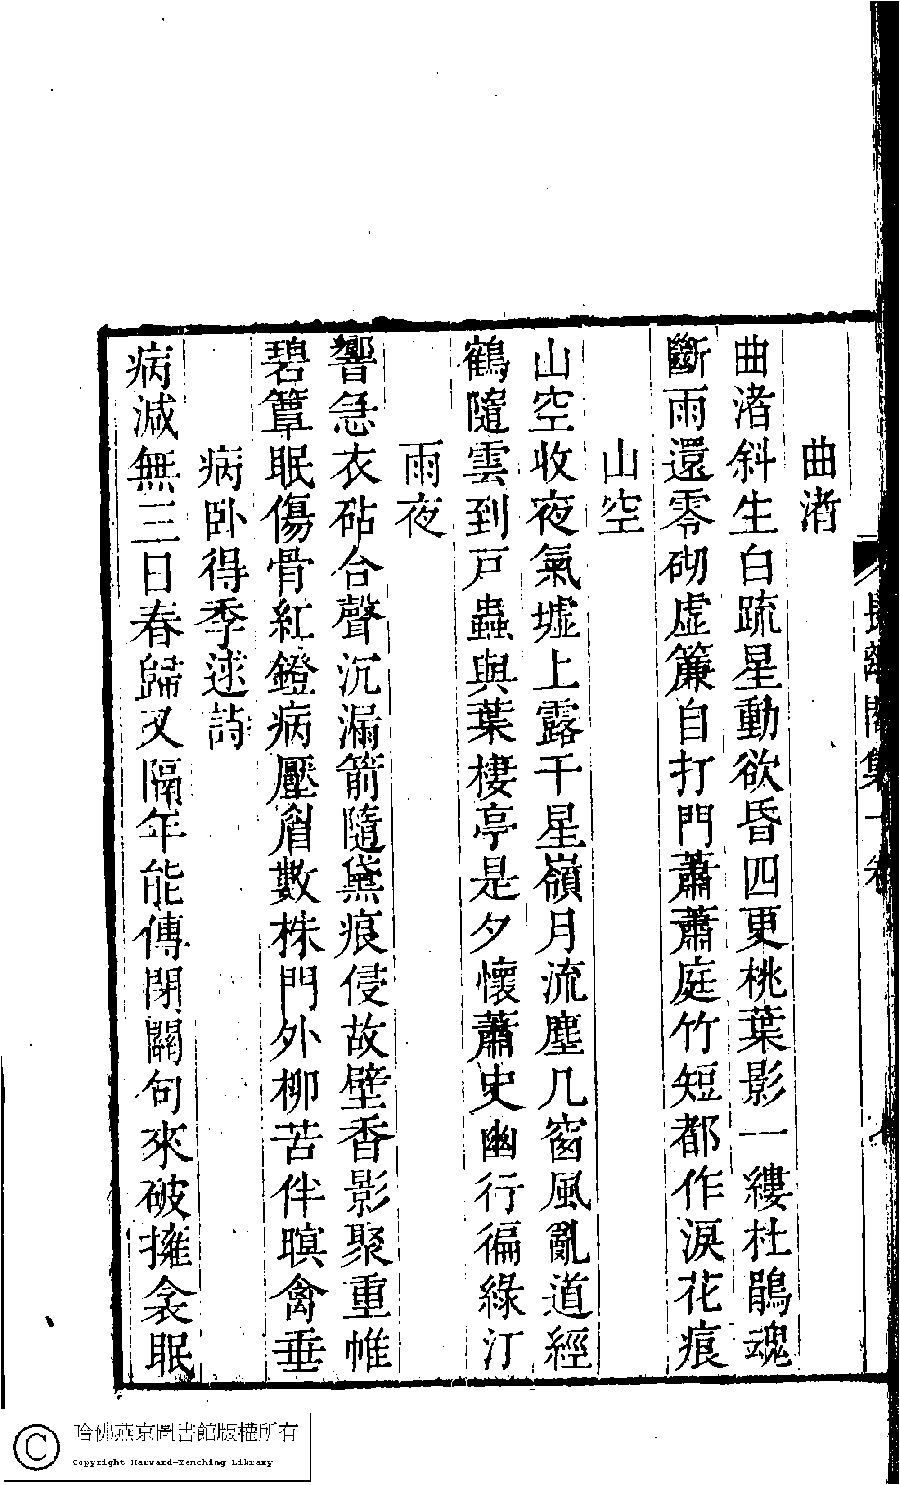 曲渚
曲渚斜生白疏星動欲昏四更桃葉影一縷杜鵑魂
斷雨還零砌虛簾自打門蕭蕭庭竹短都作淚花痕
山空
山空收夜氣墟上露干星嶺月流塵几窗風亂道經
鶴隨雲到戸蟲與葉棲亭是夕懷蕭史幽行徧綠汀
雨夜
響急衣砧合聲沉漏箭隨黛痕侵故壁香影聚重帷
碧簟眠傷骨紅鐙病壓眉數株門外柳苦伴瞑禽垂
病卧得季逑詩
病減無三日春歸又隔年能傳閉關句來破擁衾眠
長離閣集
哈佛燕京圖書館版權所有
Copyright Harvard-Yenching Library